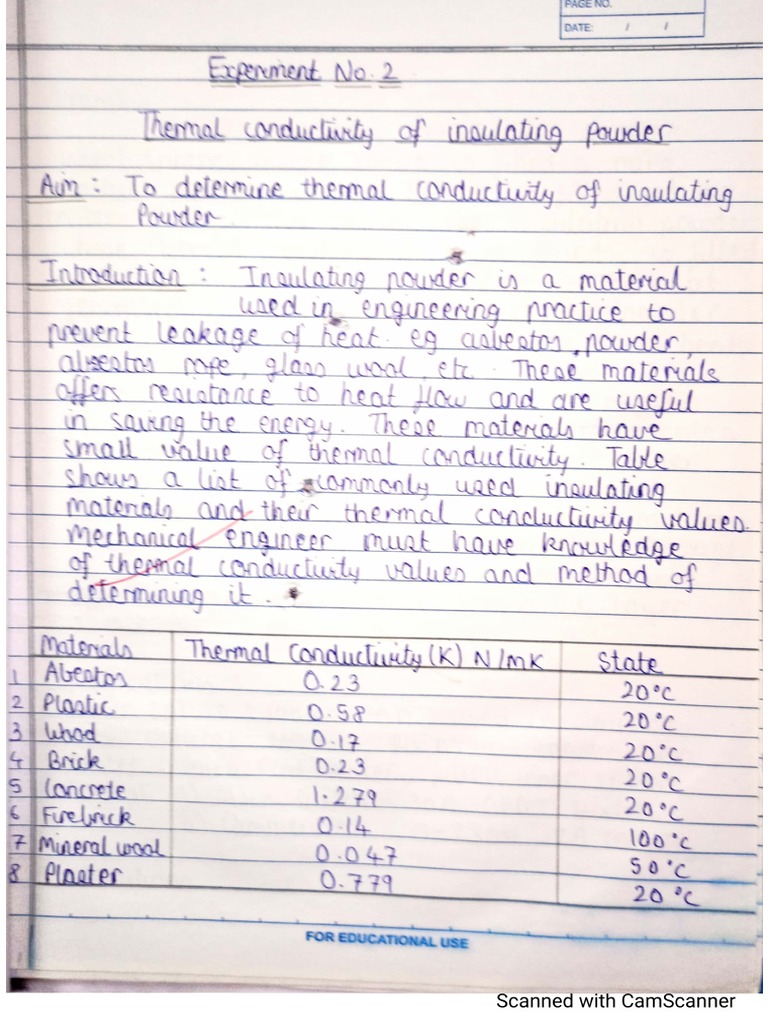 PAGE NO.
DATE: / /
Experiment No. 2
Thermal conductivity of insulating powder
Aim : To determine thermal conductivity of insulating
Powder
Introduction : Insulating powder is a material
used in engineering practice to
prevent leakage of heat. eg asbestos, powder,
absestos rope, glass wool, etc. These materials
offers resistance to heat flow and are useful
in saving the energy. These materials have
small value of thermal conductivity. Table
shows a list of commonly used insulating
materials and their thermal conductivity values.
Mechanical engineer must have knowledge
of thermal conductivity values and method of
determining it.
Materials Thermal Conductivity (K) N/mK State
1 Abestos 0.23 20°C
2 Plastic 0.58 20°C
3 Wood 0.17 20°C
4 Brick 0.23 20°C
5 Concrete 1.279 20°C
6 Firebrick 0.14 100°C
7 Mineral wool 0.047 50°C
8 Plaster 0.779 20°C
FOR EDUCATIONAL USE
Scanned with CamScanner